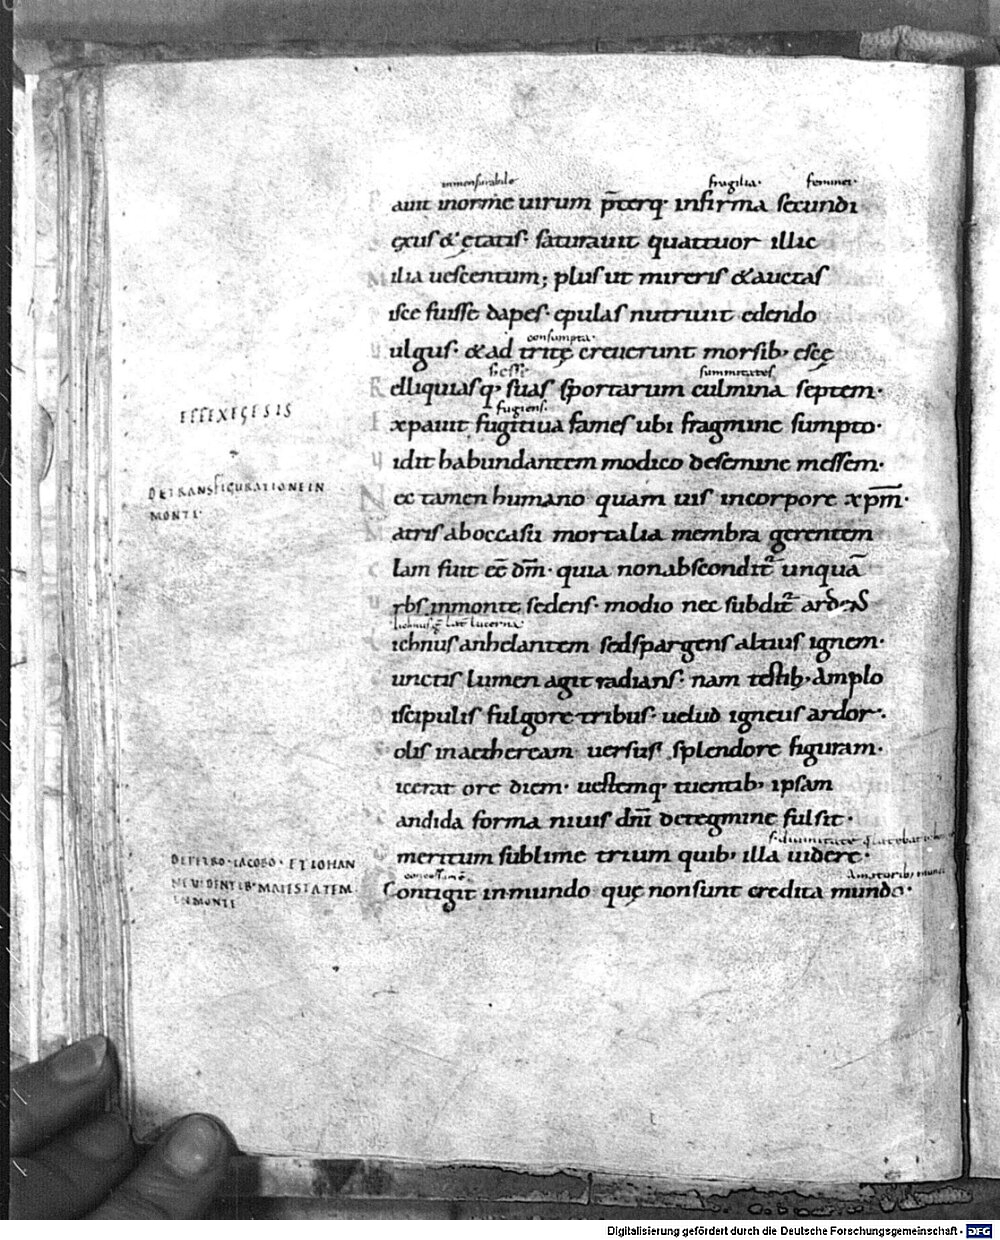 inmensurabile fragilia· feminei·
P auit inorme uirum p̄terq· infirma secundi
S exus & ętatis· saturauit quattuor illic
M ilia uescentum; plus ut mireris & auctas
isce fuisse dapes· epulas nutriuit edendo
consumpta·
u ulgus· & ad tritę creuerunt morsib; escę
summitates
R elliquiasq; suas sportarum culmina septem·
fugiens·
E xpauit fugitiua fames ubi fragmine sumpto·
EFFEXEGESIS
u idit habundantem modico de semine messem·
DE TRANSFIGURATIONE IN
MONTE·
N ec tamen humano quam uis in corpore xp̄m·
M atris ab occasu mortalia membra gerentem
C lam fuit eē dm̄· quia non absconditur unquā
u rbs in monte sedens· modio nec subditur ardens
lichnus grece latine lucerna·
ichnus anhelantem sed spargens altius ignem·
C unctis lumen agit radians· nam testib; amplo
D iscipulis fulgore tribus· uelud igneus ardor·
S olis in aetheream uersus splendore figuram·
icerat ore diem· uestemq; tuentib; ipsam
C andida forma niuis dn̄i de tegmine fulsit·
s· diuinitate
O meritum sublime trium quib; illa uidere·
DE PETRO· IACOBO· ET IOHAN
NE UIDENTIB; MAIESTATEM
IN MONTE
Amatorib; mundi
Contigit in mundo quę non sunt credita mundo·
Digitalisierung gefördert durch die Deutsche Forschungsgemeinschaft - DFG